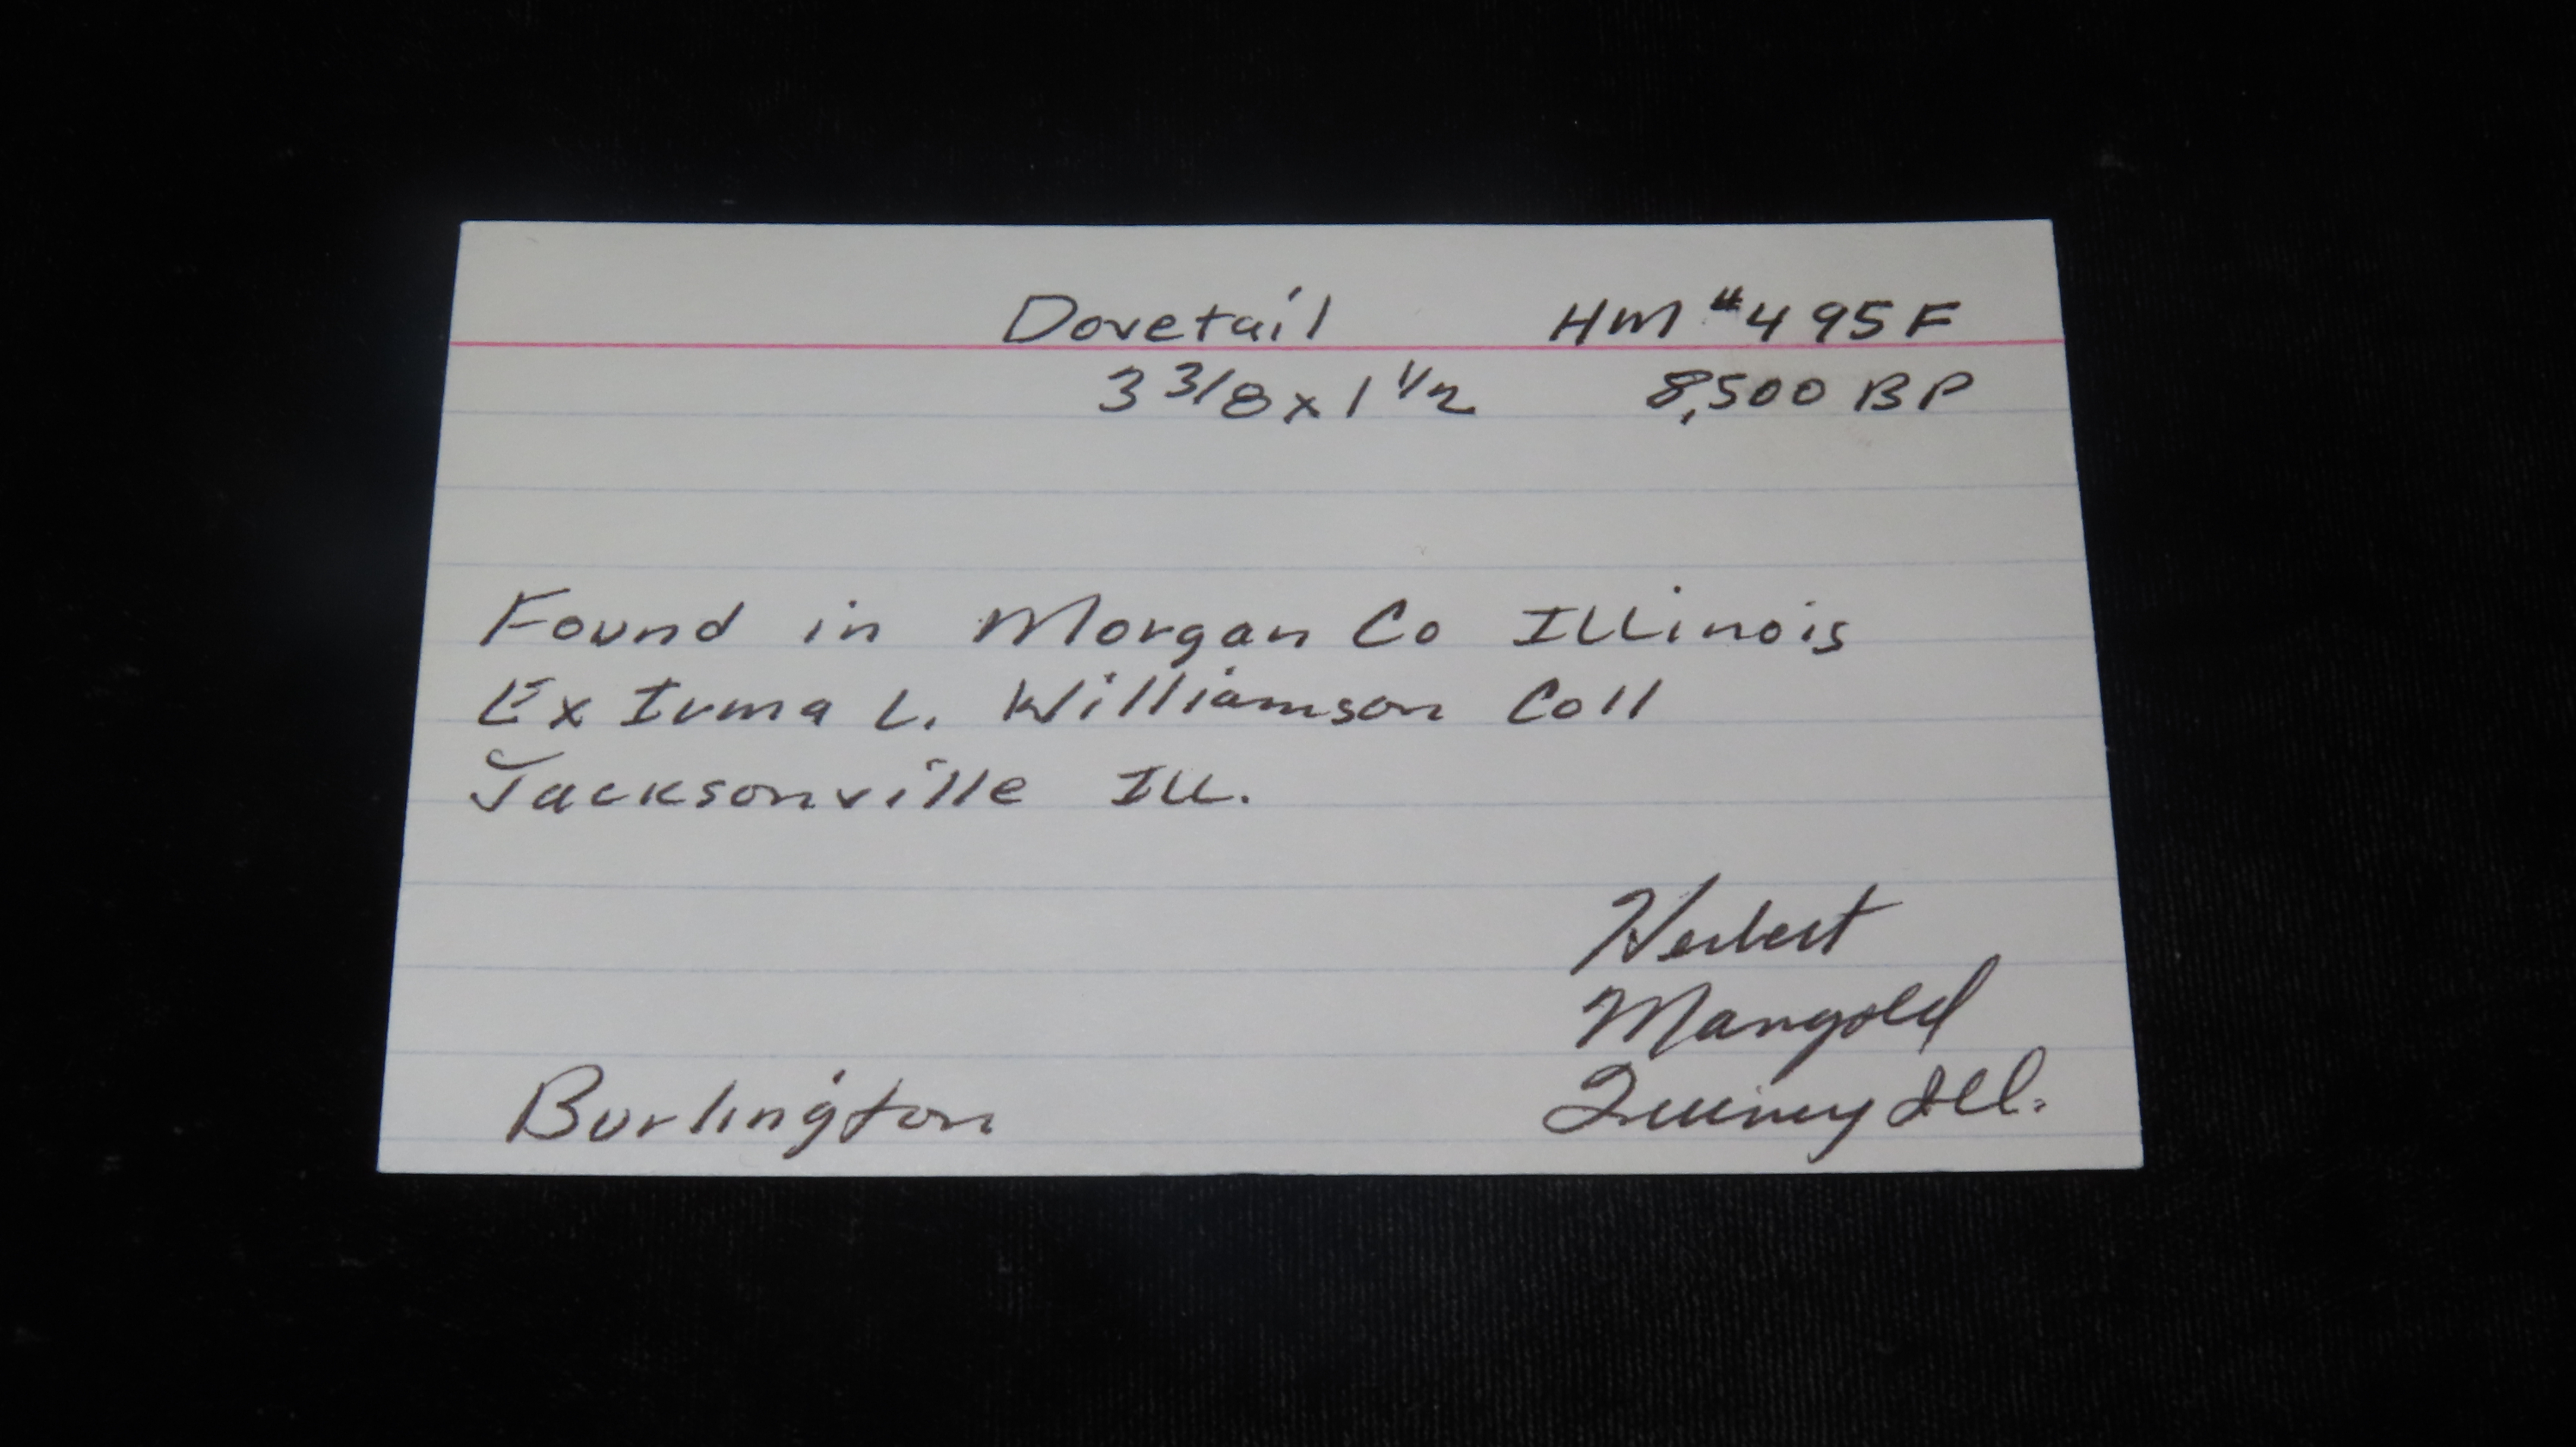 Dovetail HM #495F
3 3/8 x 1 1/2 8,500 BP
Found in Morgan Co Illinois
Ex Irma L. Williamson Coll
Jacksonville Ill.
Herbert
Mangold
Burlington Quincy Ill.